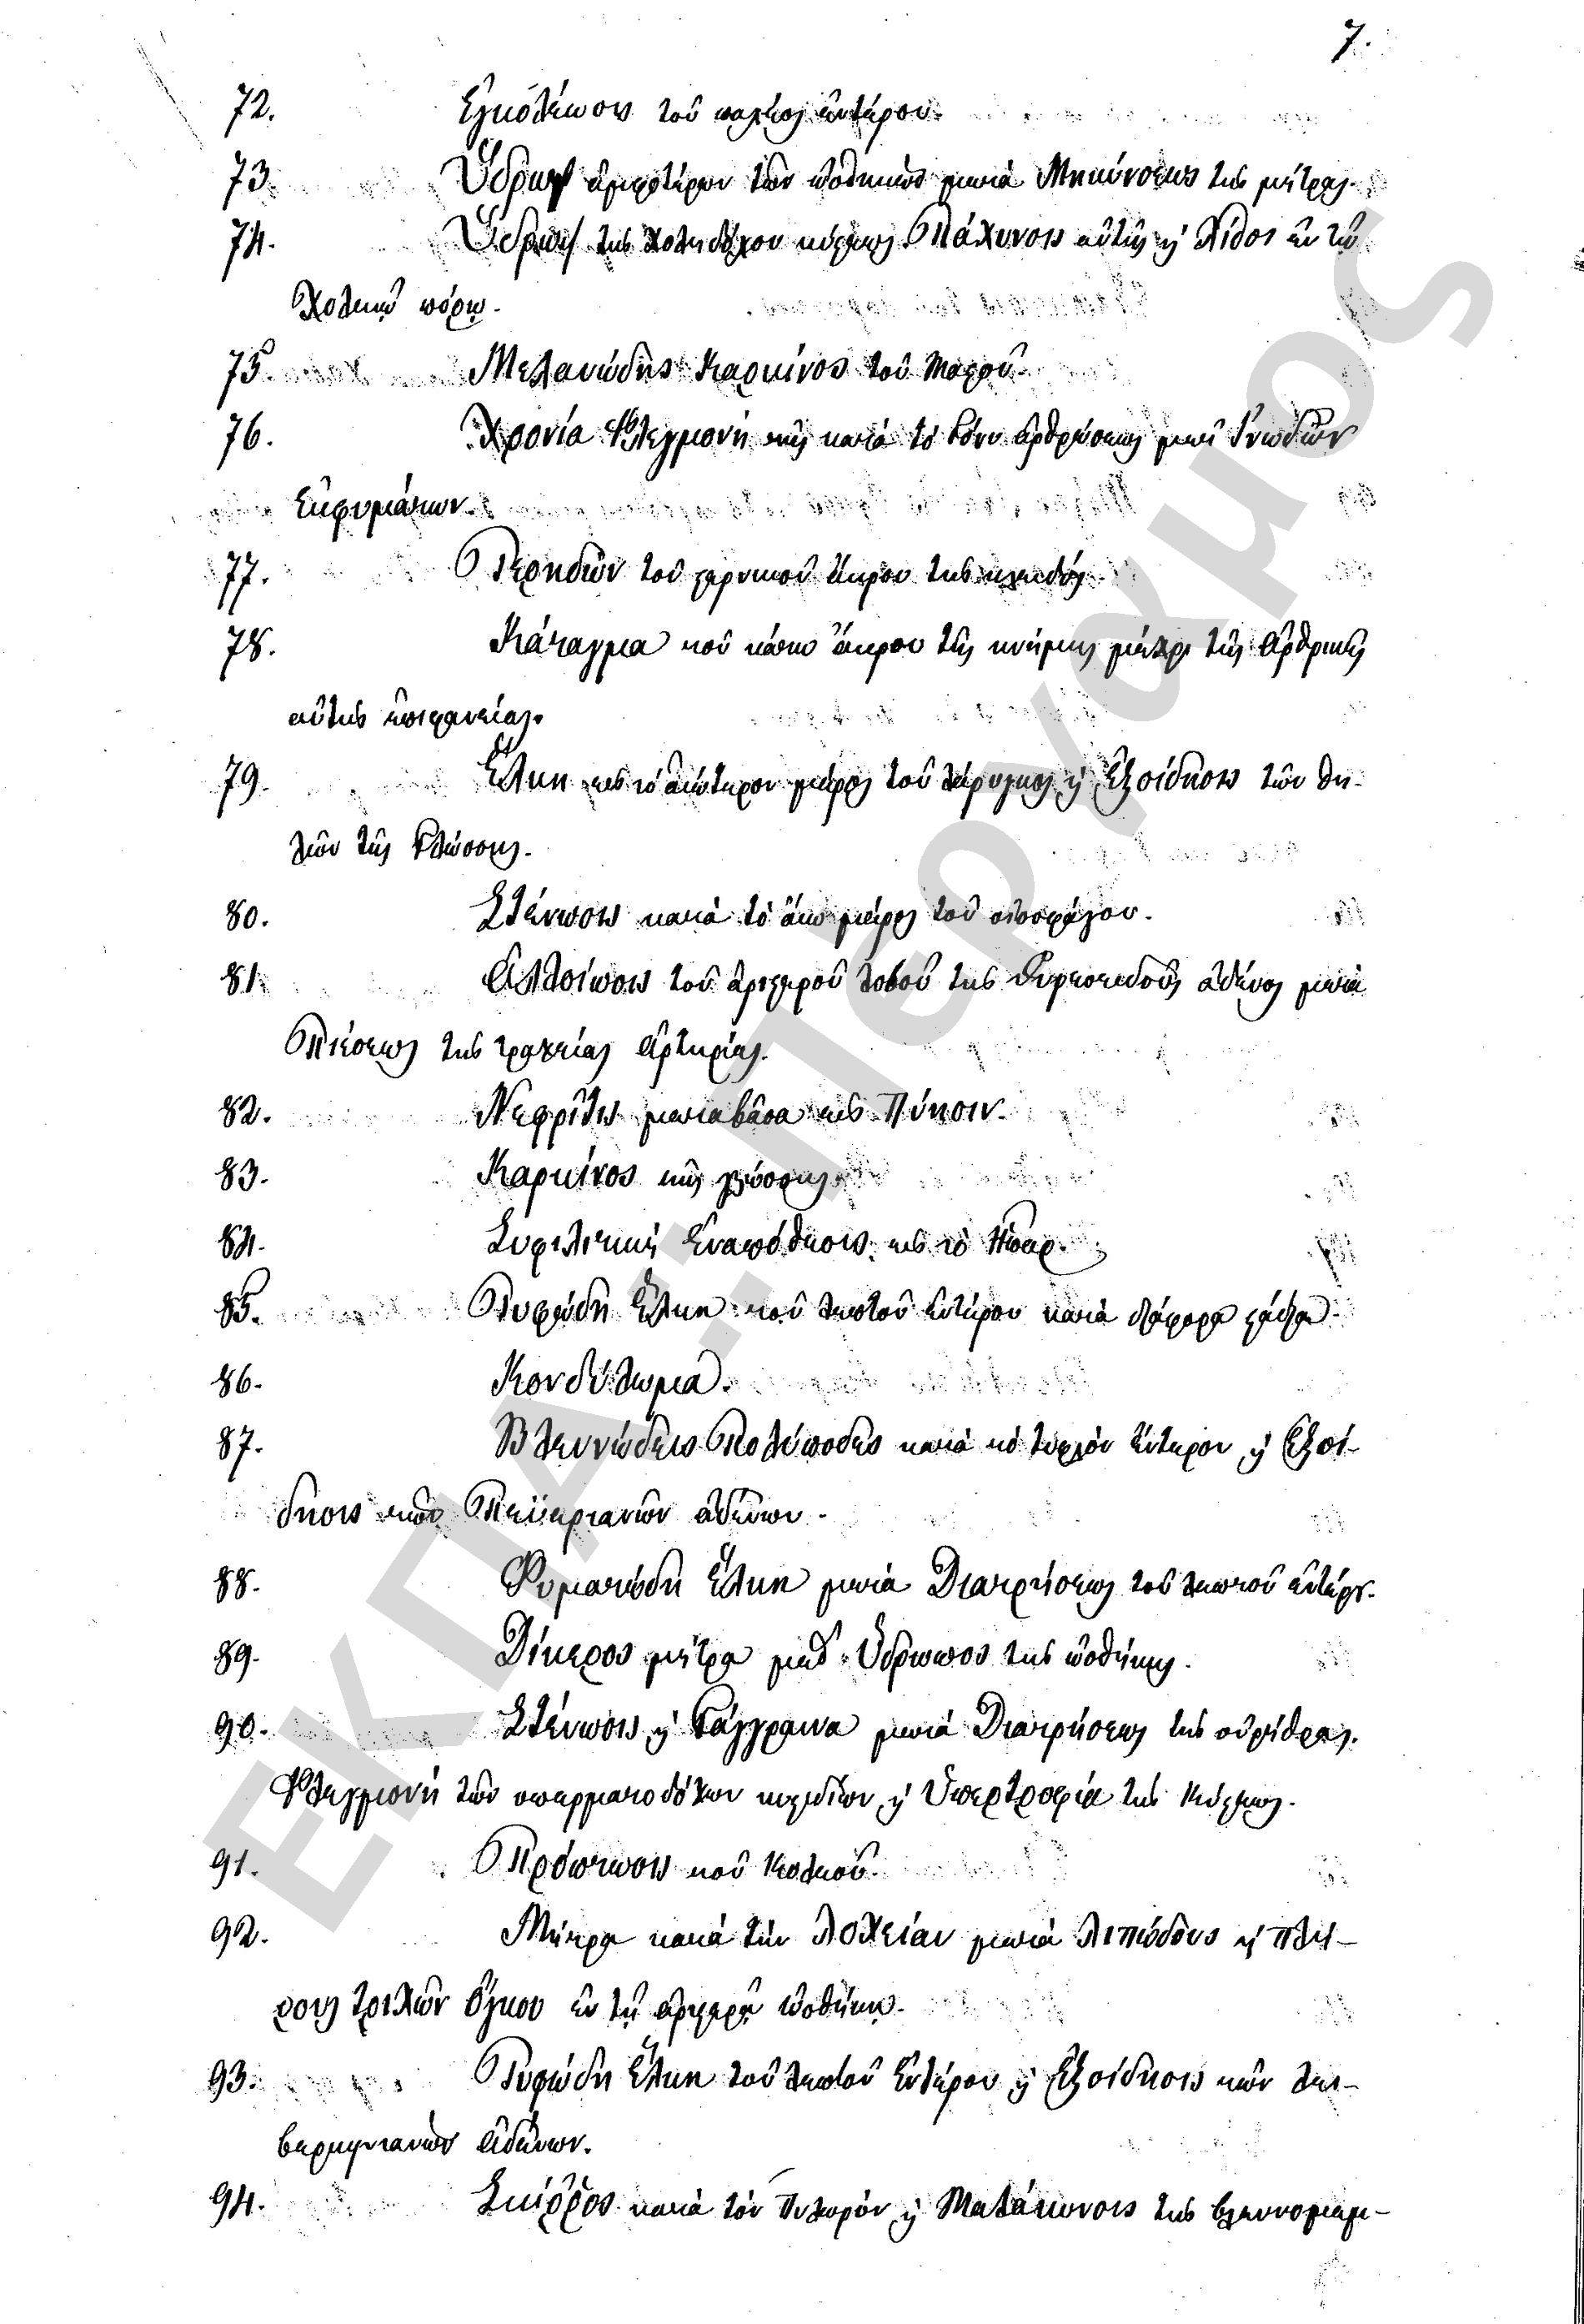 7.
72. Ἐγκολέωσις τοῦ παχέος ἐντέρου.
73. Ὕδρωψ ἀμφοτέρων τῶν ὠοθηκῶν μετὰ Μηκύνσεως τῆς μήτρας.
74. Ὕδρωψ τῆς Χοληδόχου κύστεως Πάχυνσις αὐτῆς ϗ Λίθος ἐν τῷ
Χολικῷ πόρῳ.
75. Μελανώδης Καρκίνος τοῦ Μαστοῦ.
76. Χρονία Φλεγμονὴ τῆς κατὰ τὸ Γόνυ ἀρθρώσεως μετὰ Ἰνωδῶν
Ἐκφυμάτων.
77. Τερηδὼν τοῦ στερνικοῦ ἄκρου τῆς κλειδός.
78. Κάταγμα τοῦ κάτω ἄκρου τῆς κνήμης μέχρι τῆς Ἀρθρικῆς
αὐτῆς ἐπιφανείας.
79. Ἕλκη εἰς τὸ ἀνώτερον μέρος τοῦ λάρυγγος ϗ Ἐξοίδησις τῶν θη-
λῶν τῆς Γλώσσης.
80. Στένωσις κατὰ τὸ ἄνω μέρος τοῦ οἰσοφάγου.
81. Ἀλλοίωσις τοῦ ἀριστεροῦ λοβοῦ τῆς Θυρεοειδοῦς ἀδένος μετὰ
Πιέσεως τῆς τραχείας Ἀρτηρίας.
82. Νεφρῖτις μεταβᾶσα εἰς Πύησιν.
83. Καρκίνος τῆς γλώσσης.
84. Συφιλιτικὴ Ἐναπόθεσις εἰς τὸ Ἧπαρ.
85. Τυφώδη Ἕλκη τοῦ λεπτοῦ Ἐντέρου κατὰ διάφορα στάδια.
86. Κονδύλωμα.
87. Βλεννώδεις Πολύποδες κατὰ τὸ τυφλὸν ἔντερον ϗ Ἐξοί-
δησις τῶν Πεϋεριανῶν ἀδένων.
88. Φυματώδη Ἕλκη μετὰ Διατρήσεως τοῦ λεπτοῦ ἐντέρου.
89. Δίκερος μήτρα μεθ' Ὕδρωπος τῆς ὠοθήκης.
90. Στένωσις ϗ Γάγγραινα μετὰ Διατρήσεως τῆς οὐρήθρας.
Φλεγμονὴ τῶν σπερματοδόχων κυστιδίων ϗ Ὑπερτροφία τῆς Κύστεως.
91. Πρόπτωσις τοῦ Κολεοῦ.
92. Μήτρα κατὰ τὴν λοχείαν μετὰ λιπώδους ϗ πλή-
ρους τριχῶν Ὄγκου ἐν τῇ ἀριστερᾷ ὠοθήκῃ.
93. Τυφώδη Ἕλκη τοῦ λεπτοῦ Ἐντέρου ϗ Ἐξοίδησις τῶν λει-
βερκυνιανῶν Ἀδένων.
94. Σκίῤῥος κατὰ τὸν Πυλωρὸν ϗ Μαλάκυνσις τῆς βλεννομεμ-
ΕΚΠΑ - Πέργαμος